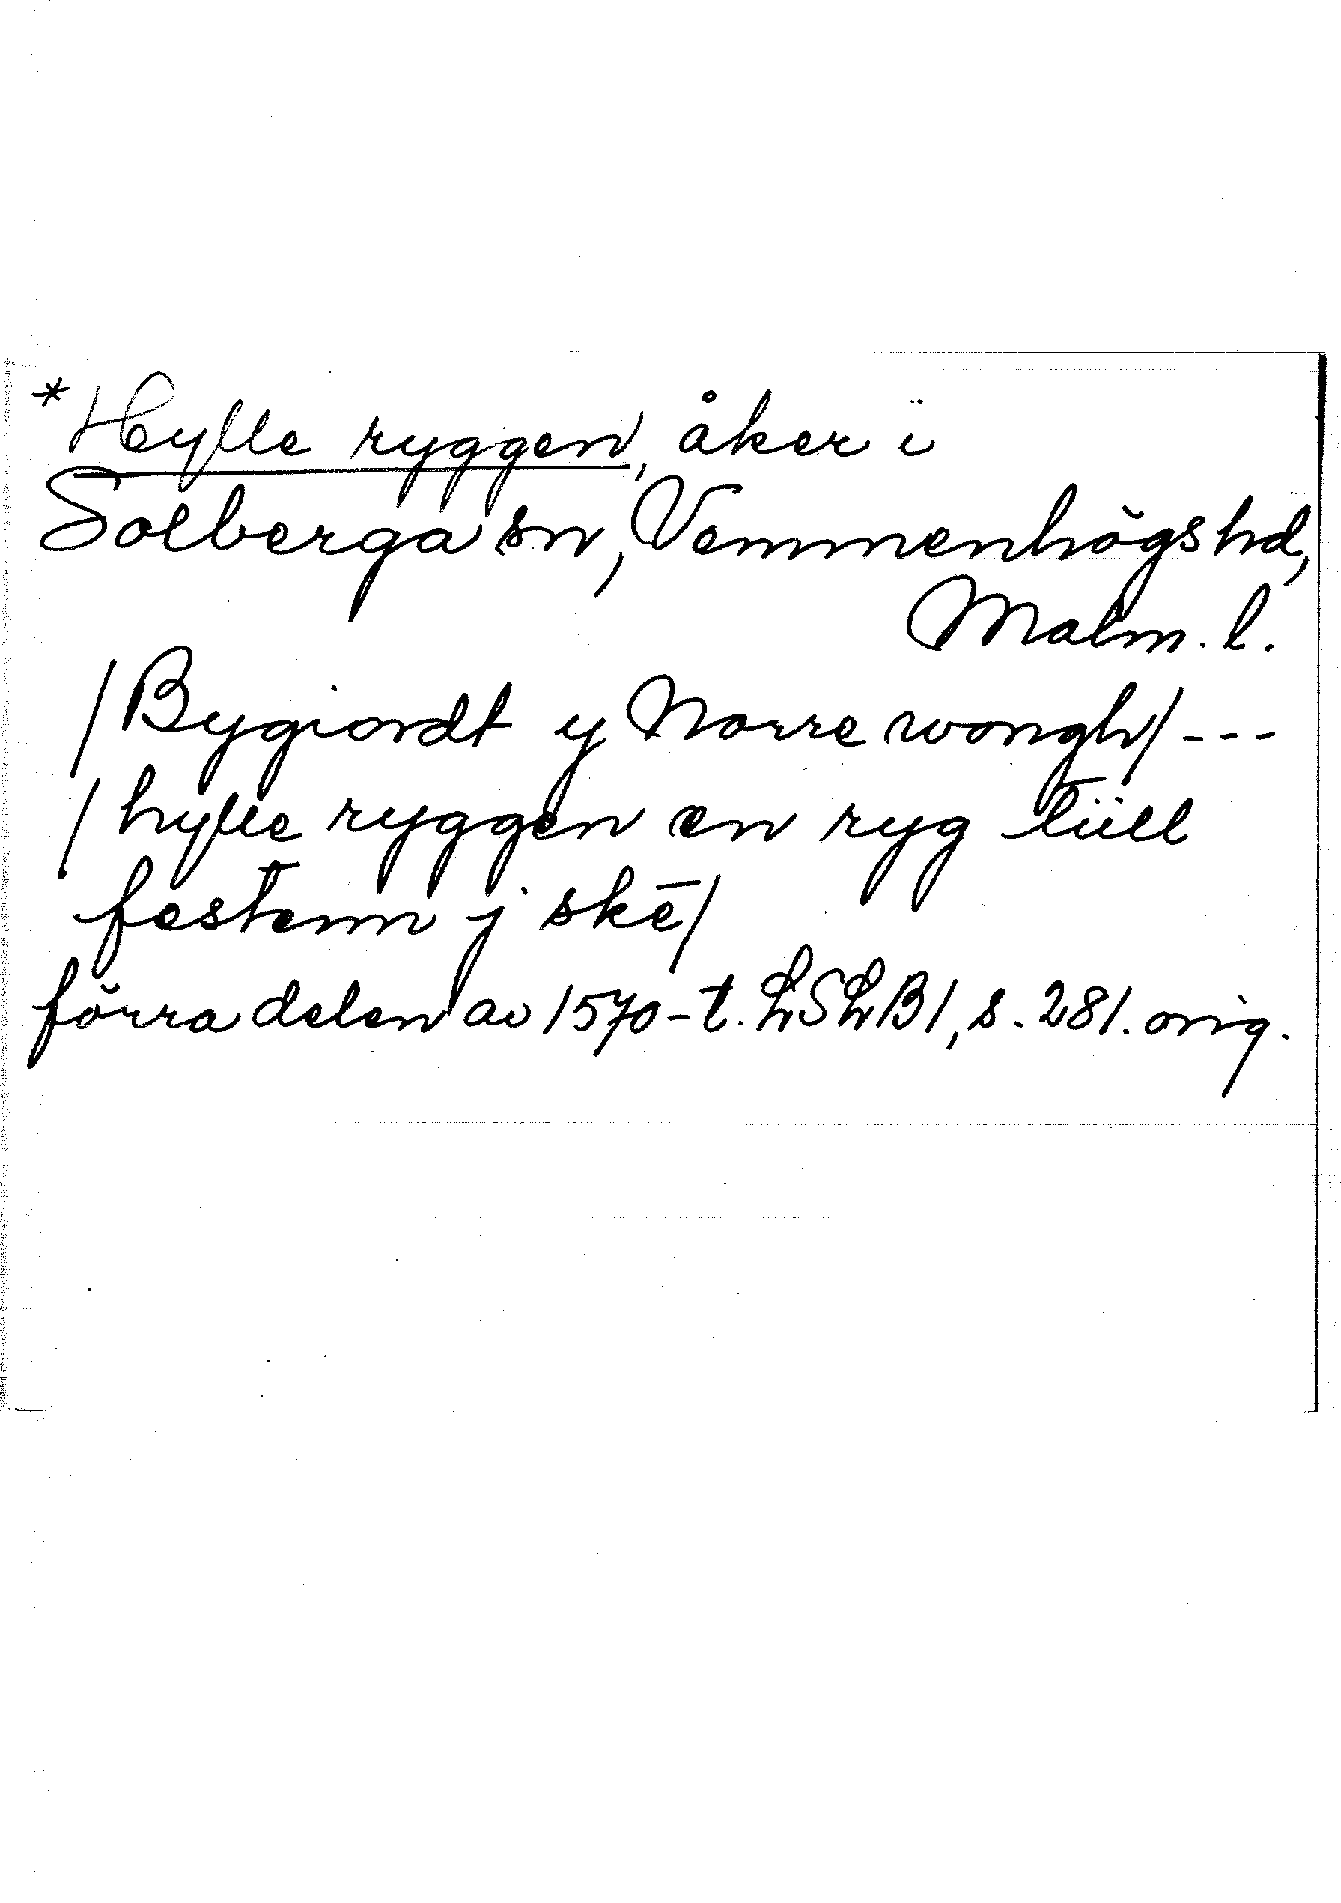 *Hylle ryggen, åker i
Solberga sn, Vemmenhögs hd,
Malm. l.
/Bygiordt y Norre wongh/ ---
/hylle ryggen en ryg tiill
festenn j skē/
förra delen av 1570-t. LSLB1, s. 281. orig.